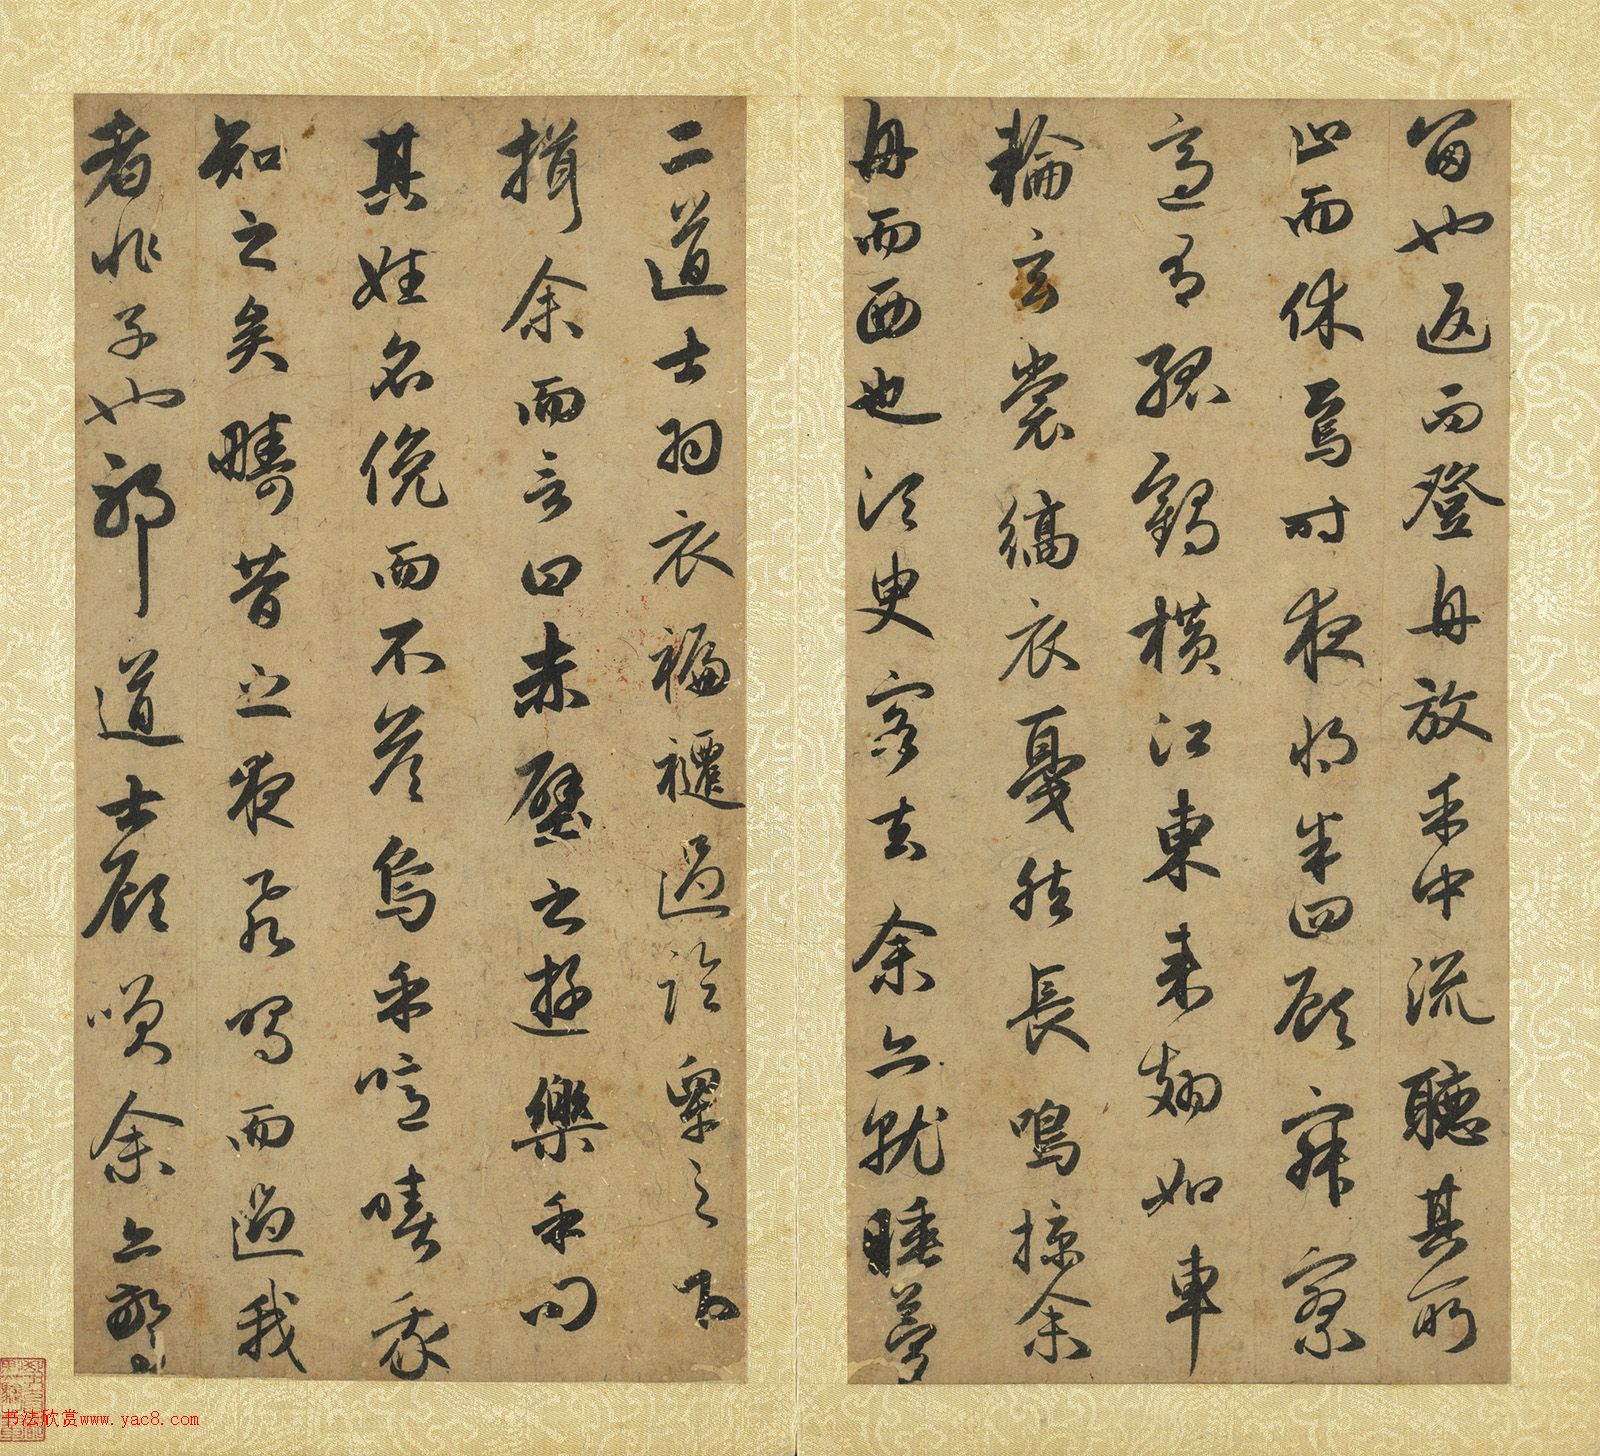 留也返而登舟放乎中流聽其所
止而休焉時夜將半四顧寂寥
適有孤鶴橫江東來翅如車
輪玄裳縞衣戛然長鳴掠余
舟而西也須臾客去余亦就睡夢
二道士羽衣褊褼過臨皋之下
揖余而言曰赤壁之遊樂乎問
其姓名俛而不答烏乎噫嘻我
知之矣疇昔之夜飛鳴而過我
者非子也邪道士顧咲余亦驚
书法欣赏www.yac8.com